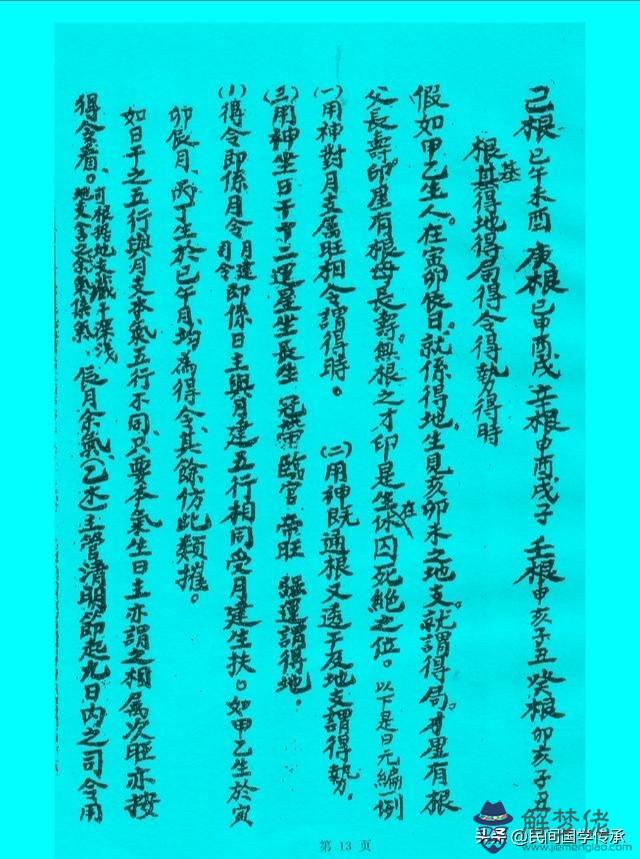 己根 巳午未酉 庚根 巳申酉戌 辛根 申酉戌子 壬根 申亥子丑 癸根 卯亥子丑
根基得地得局得令得勢得時
假如甲乙生人。在寅卯依日。就係得地。生見亥卯未之地支。就謂得局。才星有根
父長壽。印星有根母長壽。無根之才印是在休囚死絕之位。以下是日元編例
(一)用神對月支属旺相令謂得時。 (二)用神既通根又透干及地支謂得勢。
(三)用神坐日干十二運星生長生 冠帶 臨官 帝旺 强運謂得地。
(1)得令即係月令 月建 司令 即係日主與月建五行相同受月建生扶。如甲乙生於寅
卯辰月、丙丁生於巳午月、均為得令、其餘仿此類推。
如日干之五行與月支本氣五行不同、只要本氣生日主亦謂之相属次旺亦按
得令看。可根據地支藏干深淺 辰月余氣(乙木)主管清明節起九日内之司令用
第 13 页
解梦佬
www.jiemenglao.com
头条 @民间国学传承